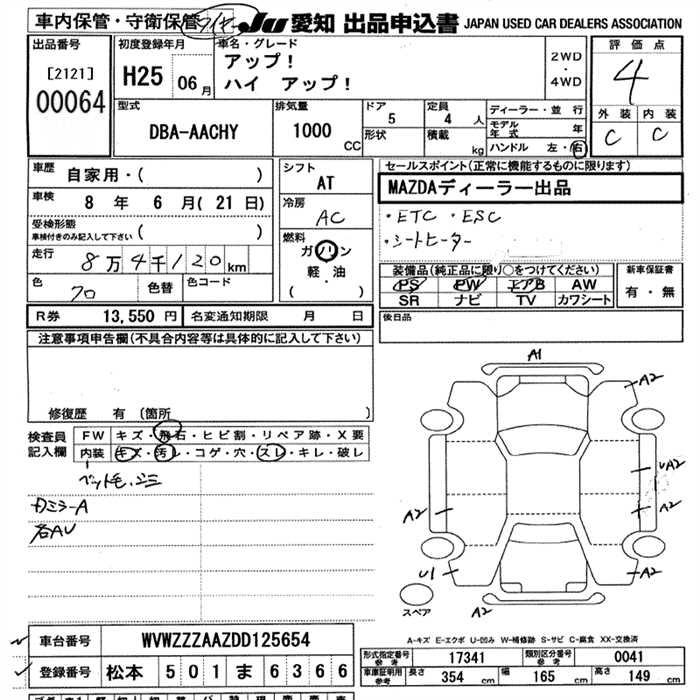 車内保管・守衛保管 JU 愛知 出品申込書 JAPAN USED CAR DEALERS ASSOCIATION
出品番号 初度登録年月 車名・グレード 評価点
[2121] H25 06月 アップ！ 2WD・4WD 4
00064 ハイ アップ！
型式 排気量 ドア 定員 ディーラー・並行 外装 内装
DBA-AACHY 1000 CC 5 4人 モデル年式 年 C C
形状 積載 kg ハンドル 左・右
車歴 自家用・( ) シフト セールスポイント(正常に機能するものに限ります)
車検 8年 6月(21日) AT MAZDAディーラー出品
受検形態 冷房 ・ETC ・ESC
車検付きのみ記入して下さい AC ・シートヒーター
走行 8万4千120km 燃料 ガソリン
色 70 色替 色コード 軽・油 ( )
装備品(純正品に限り○をつけてください) 新車保証書
PS PW エアB AW 有・無
SR ナビ TV カワシート
R券 13,550円 名変通知期限 月 日 後日品
注意事項申告欄(不具合内容等は具体的に記入して下さい)
修復歴 有(箇所
検査員 FW キズ・飛石・ヒビ割・リペア跡・X要
記入欄 内装 キズ・汚レ・コゲ・穴・スレ・キレ・破レ
ペット毛、ゴミ
カミラーA
各AU
A1
A2
UA2
A2 A2
U1 A2
スペア A2
A-キズ E-エクボ U-凹み W-補修跡 S-サビ C-腐食 XX-交換済
車台番号 WVWZZZAAZDD125654
型式指定番号 参考 17341 類別区分番号 参考 0041
登録番号 松本 501ま6366
車庫証明用 参考 長さ 354 cm 幅 165 cm 高さ 149 cm